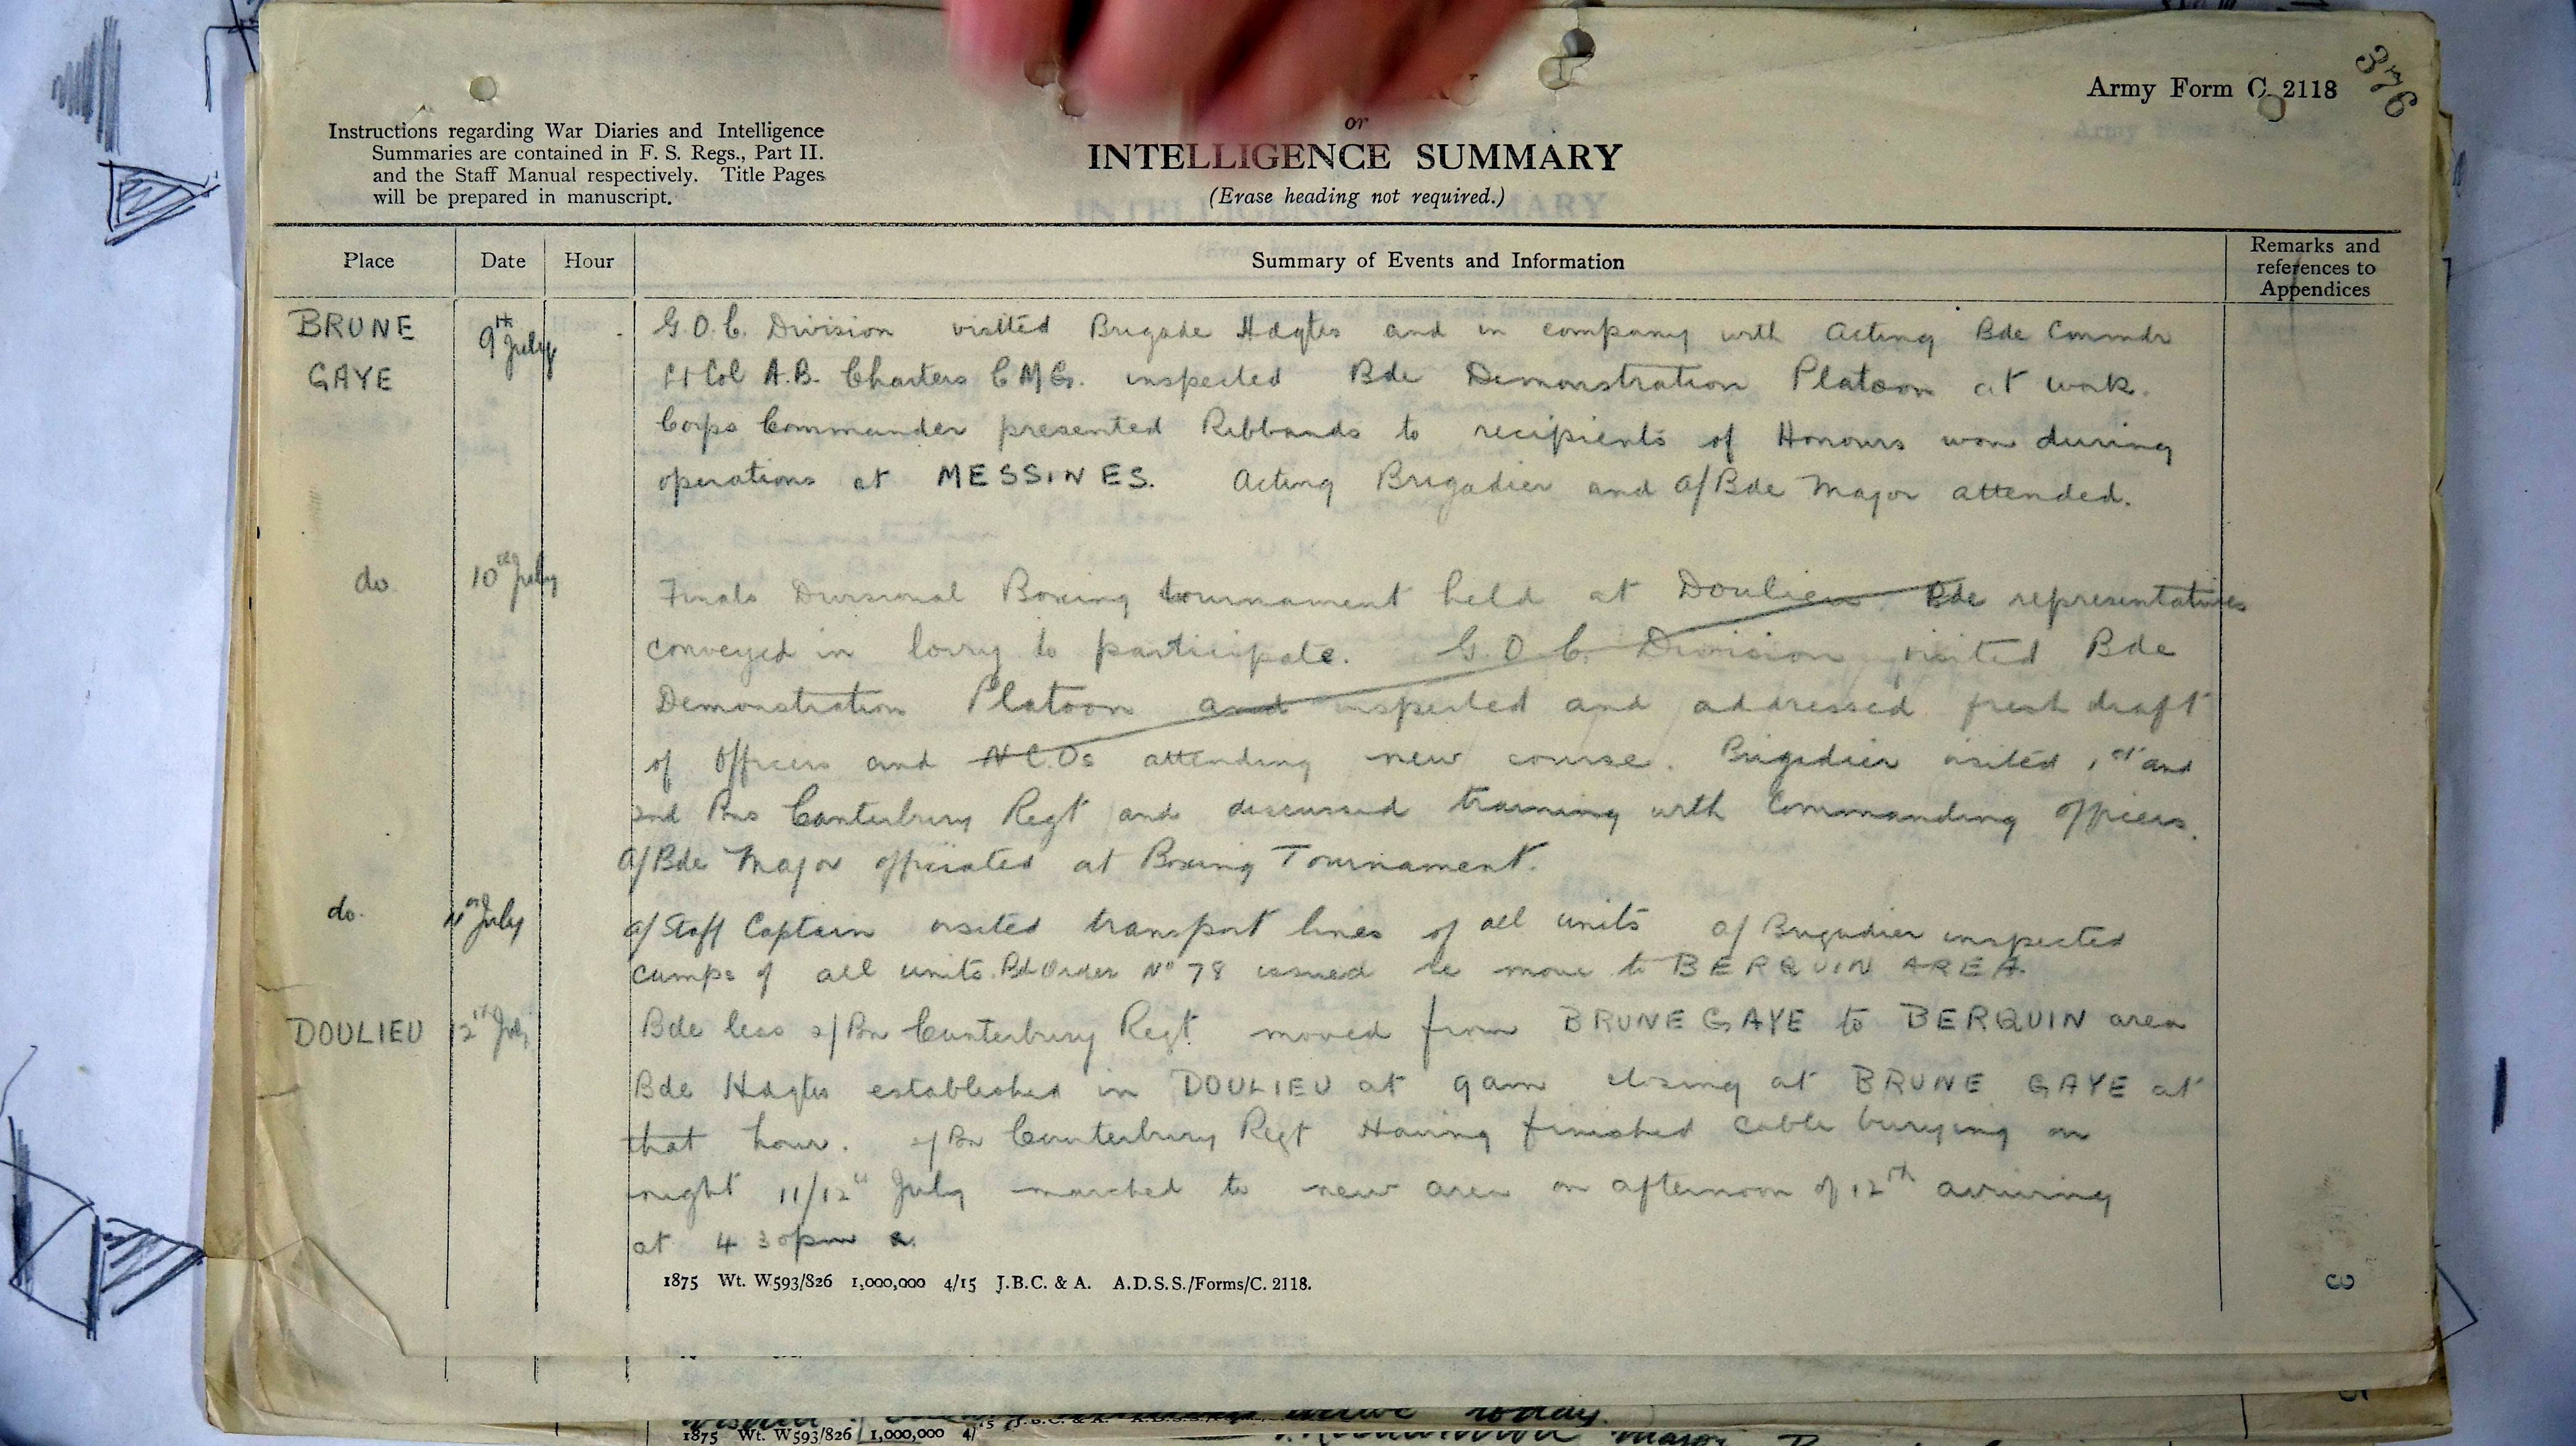 Army Form C. 2118
376
Instructions regarding War Diaries and Intelligence
Summaries are contained in F. S. Regs., Part II.
and the Staff Manual respectively. Title Pages
will be prepared in manuscript.
or
INTELLIGENCE SUMMARY
(Erase heading not required.)
Place Date Hour Summary of Events and Information Remarks and references to Appendices
BRUNE GAYE 9th July
G.O.C. Division visited Brigade Hdqtes and in company with Acting Bde Commdr
Lt Col A.B. Charters CMG. inspected Bde Demonstration Platoon at work.
Corps Commander presented Ribbands to recipients of Honours won during
operations at MESSINES. Acting Brigadier and a/Bde Major attended.
do 10th July
Finals Divisional Boxing tournament held at Doulieu. Bde representatives
conveyed in lorry to participate. G.O.C. Division visited Bde
Demonstration Platoon and inspected and addressed fresh draft
of Officers and N.C.Os attending new course. Brigadier visited 1st and
2nd Bns Canterbury Regt and discussed training with Commanding officers.
a/Bde Major officiated at Boxing Tournament.
do. 11th July
a/Staff Captain visited transport lines of all units a/Brigadier inspected
camps of all units. Bd Order No 78 issued re move to BERQUIN AREA.
DOULIEU 12th July
Bde less 2/Bn Canterbury Regt. moved from BRUNE GAYE to BERQUIN area
Bde Hdqtes established in DOULIEU at 9am closing at BRUNE GAYE at
that hour. 2/Bn Canterbury Regt Having finished cable burying on
night 11/12th July marched to new area on afternoon of 12th arriving
at 4 30pm
1875 Wt. W593/826 1,000,000 4/15 J.B.C. & A. A.D.S.S./Forms/C. 2118.
3
today.
1875 Wt. W593/826 1,000,000 4/15 J.B.C. & A.
Major